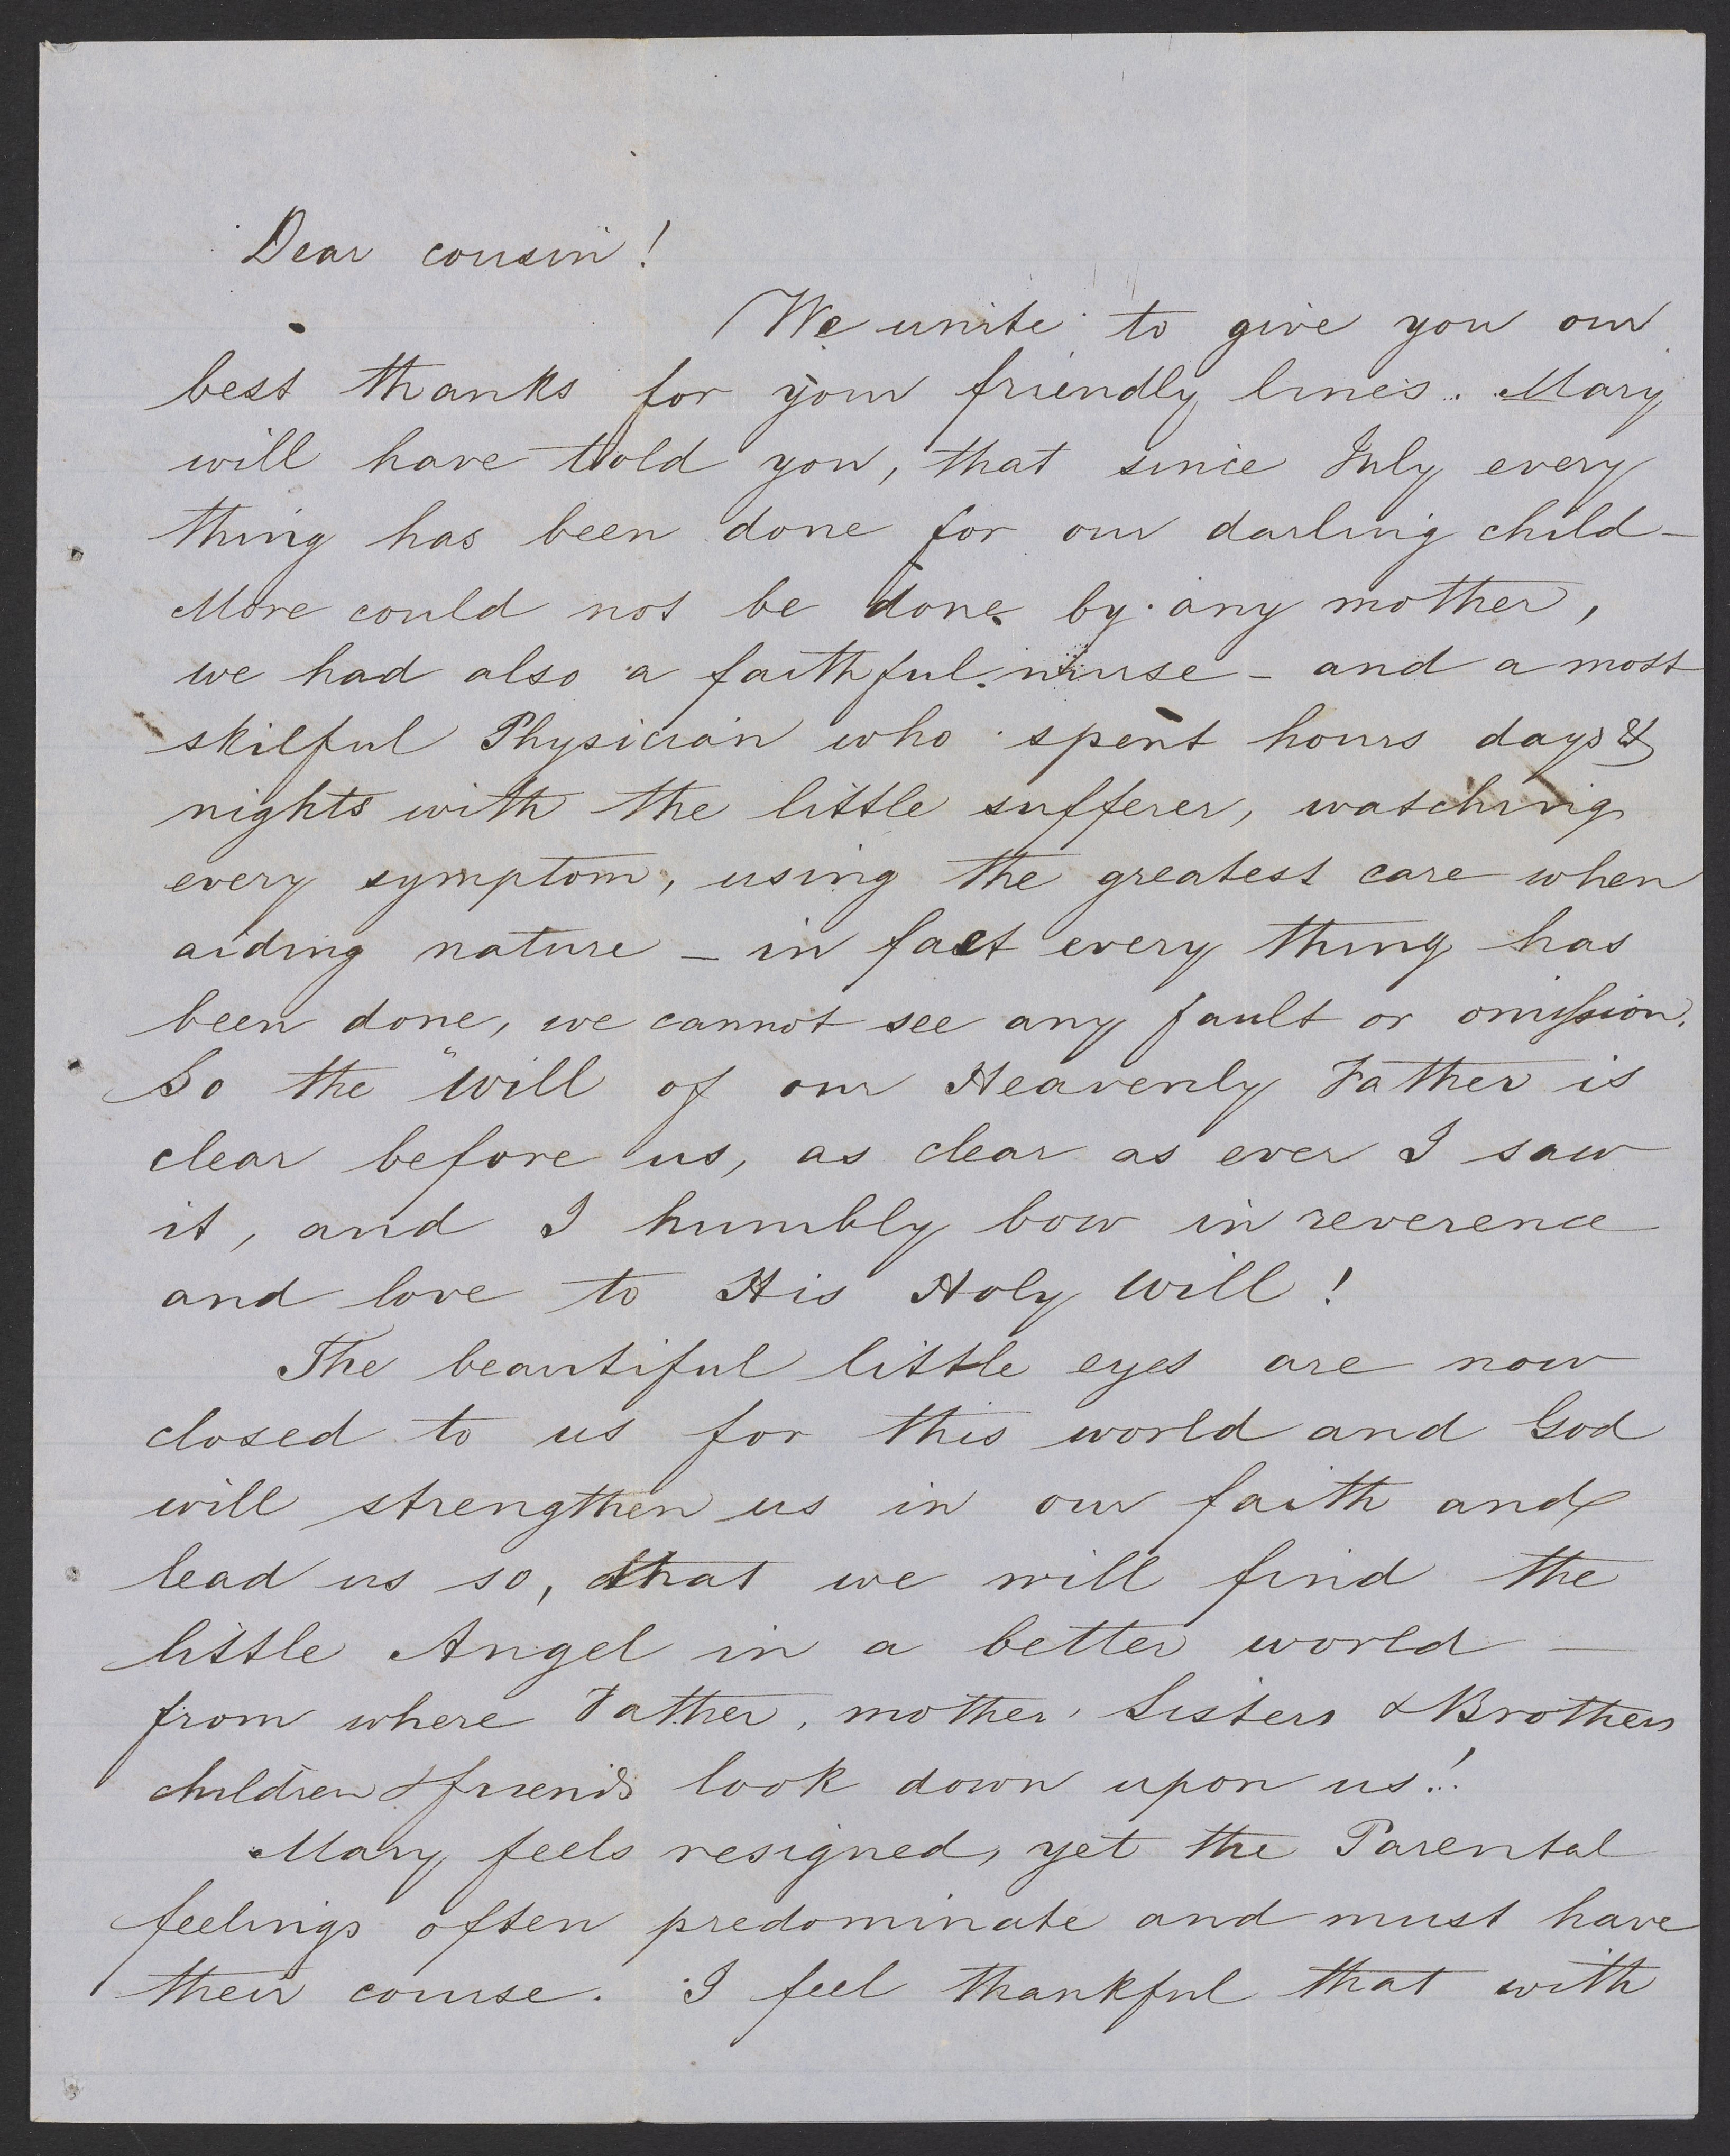 Dear cousin!
We unite to give you our
best thanks for your friendly lines. Mary
will have told you, that since July every
thing has been done for our darling child -
More could not be done by any mother,
we had also a faithful nurse - and a most
skilful Physician who spent hours days &
nights with the little sufferer, watching
every symptom, using the greatest care when
aiding nature - in fact every thing has
been done, we cannot see any fault or omission.
So the "Will of our Heavenly Father is
clear before us, as clear as ever I saw
it, and I humbly bow in reverence
and love to His Holy Will!
The beautiful little eyes are now
closed to us for this world and God
will strengthen us in our faith and
lead us so, that we will find the
little Angel in a better world -
from where Father, mother, Sisters & Brothers
children & friends look down upon us!
Mary feels resigned, yet the Parental
feelings often predominate and must have
their course. I feel thankful that with